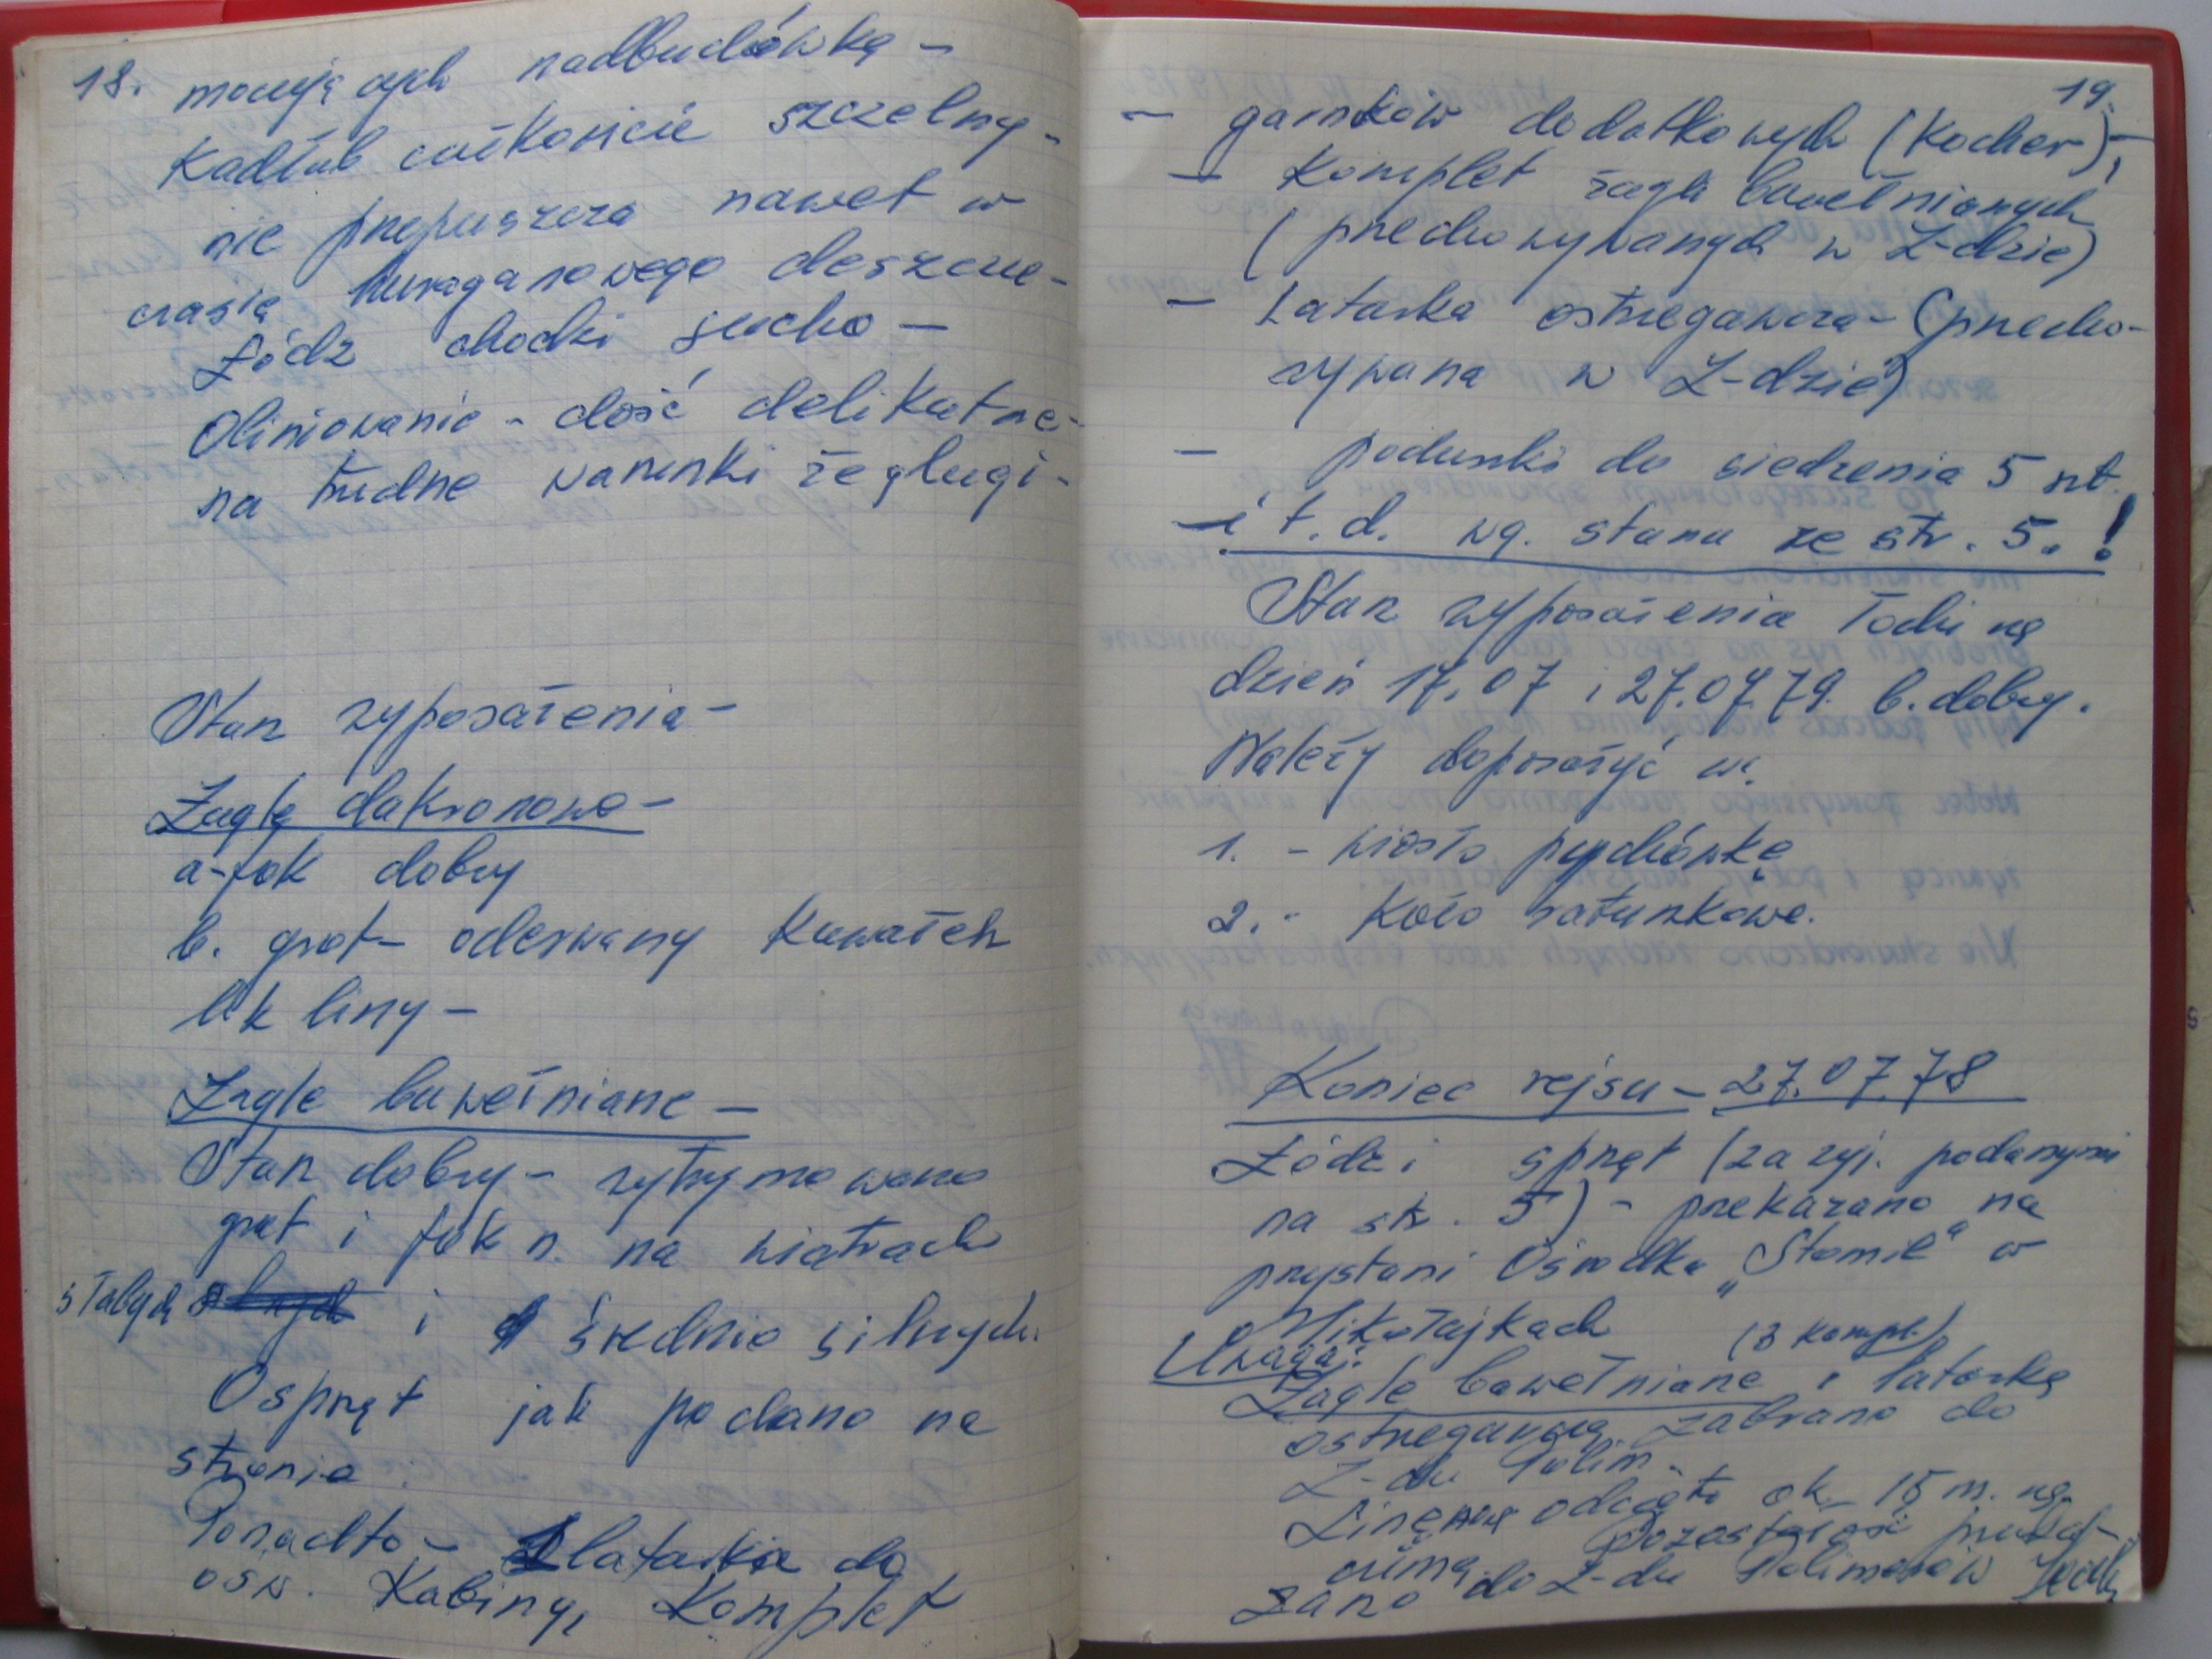 18.
mocujących nadbudówkę –
Kadłub całkowicie szczelny –
nie przepuszcza nawet w
czasie huraganowego deszczu –
Łódź chodzi sucho –
Olinowanie – dość delikatne –
na trudne warunki żeglugi –
Stan wyposażenia –
Żagle dakronowe –
a – fok dobry
b. grot – oderwany kawałek
lik liny –
Żagle bawełniane –
Stan dobry – wytrymowano
grot i fok n. na wiatrach
słabych i średnio silnych.
Osprzęt jak podano na
stronie
Ponadto – latarka do
ośw. Kabiny, Komplet
19.
– garnków dodatkowych (Kocher),
– Komplet żagli bawełnianych
(przechowywanych w Z-dzie)
– Latarka ostrzegawcza – (przecho-
wywana w Z-dzie)
– poduszki do siedzenia 5 szt.
– i t. d. wg. stanu ze str. 5. !
Stan wyposażenia łodzi na
dzień 17.07 i 27.07.79. b. dobry.
Należy doposażyć w.
1. – wiosło pychówkę
2. – Koło ratunkowe.
Koniec rejsu – 27.07.78
Łódź i sprzęt (za wyj. podanymi
na str. 5) – przekazano na
przystani Ośrodka „Stomil" w
Mikołajkach
Uwaga: (3 kompl.)
Żagle bawełniane i latarkę
ostrzegawczą zabrano do
Z-du Polim.
Linę odcięto ok. 15 m. na
cumę. Pozostałość przeka-
zano do Z-du Polimerów